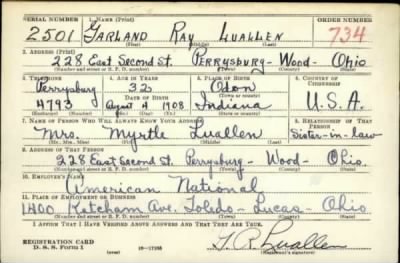 SERIAL NUMBER 1. NAME (Print) ORDER NUMBER
2501 Garland Ray Luallen 734
(First) (Middle) (Last)
2. ADDRESS (Print)
228 East Second St. Perrysburg - Wood - Ohio
(Number and street or R. F. D. number) (Town) (County) (State)
3. TELEPHONE 4. AGE IN YEARS 5. PLACE OF BIRTH 6. COUNTRY OF CITIZENSHIP
Perrysburg 32 Odon
DATE OF BIRTH (Town or county)
4793 August 4 1908 Indiana U.S.A.
(Exchange) (Number) (Mo.) (Day) (Yr.) (State or country)
7. NAME OF PERSON WHO WILL ALWAYS KNOW YOUR ADDRESS 8. RELATIONSHIP OF THAT PERSON
Mrs. Myrtle Luallen Sister-in-law
(Mr., Mrs., Miss) (First) (Middle) (Last)
9. ADDRESS OF THAT PERSON
228 East Second St. Perrysburg - Wood - Ohio.
(Number and street or R. F. D. number) (Town) (County) (State)
10. EMPLOYER'S NAME
American National
11. PLACE OF EMPLOYMENT OR BUSINESS
1400 Ketcham Ave. Toledo - Lucas - Ohio
(Number and street or R. F. D. number) (Town) (County) (State)
I AFFIRM THAT I HAVE VERIFIED ABOVE ANSWERS AND THAT THEY ARE TRUE.
REGISTRATION CARD
D. S. S. Form 1 (over) G. R. Luallen
(Registrant's signature)